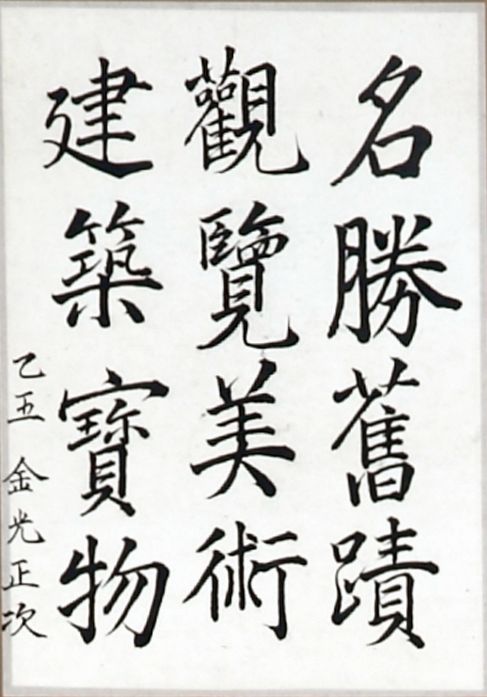 名勝舊蹟
觀覽美術
建築寶物
乙五 金光正次